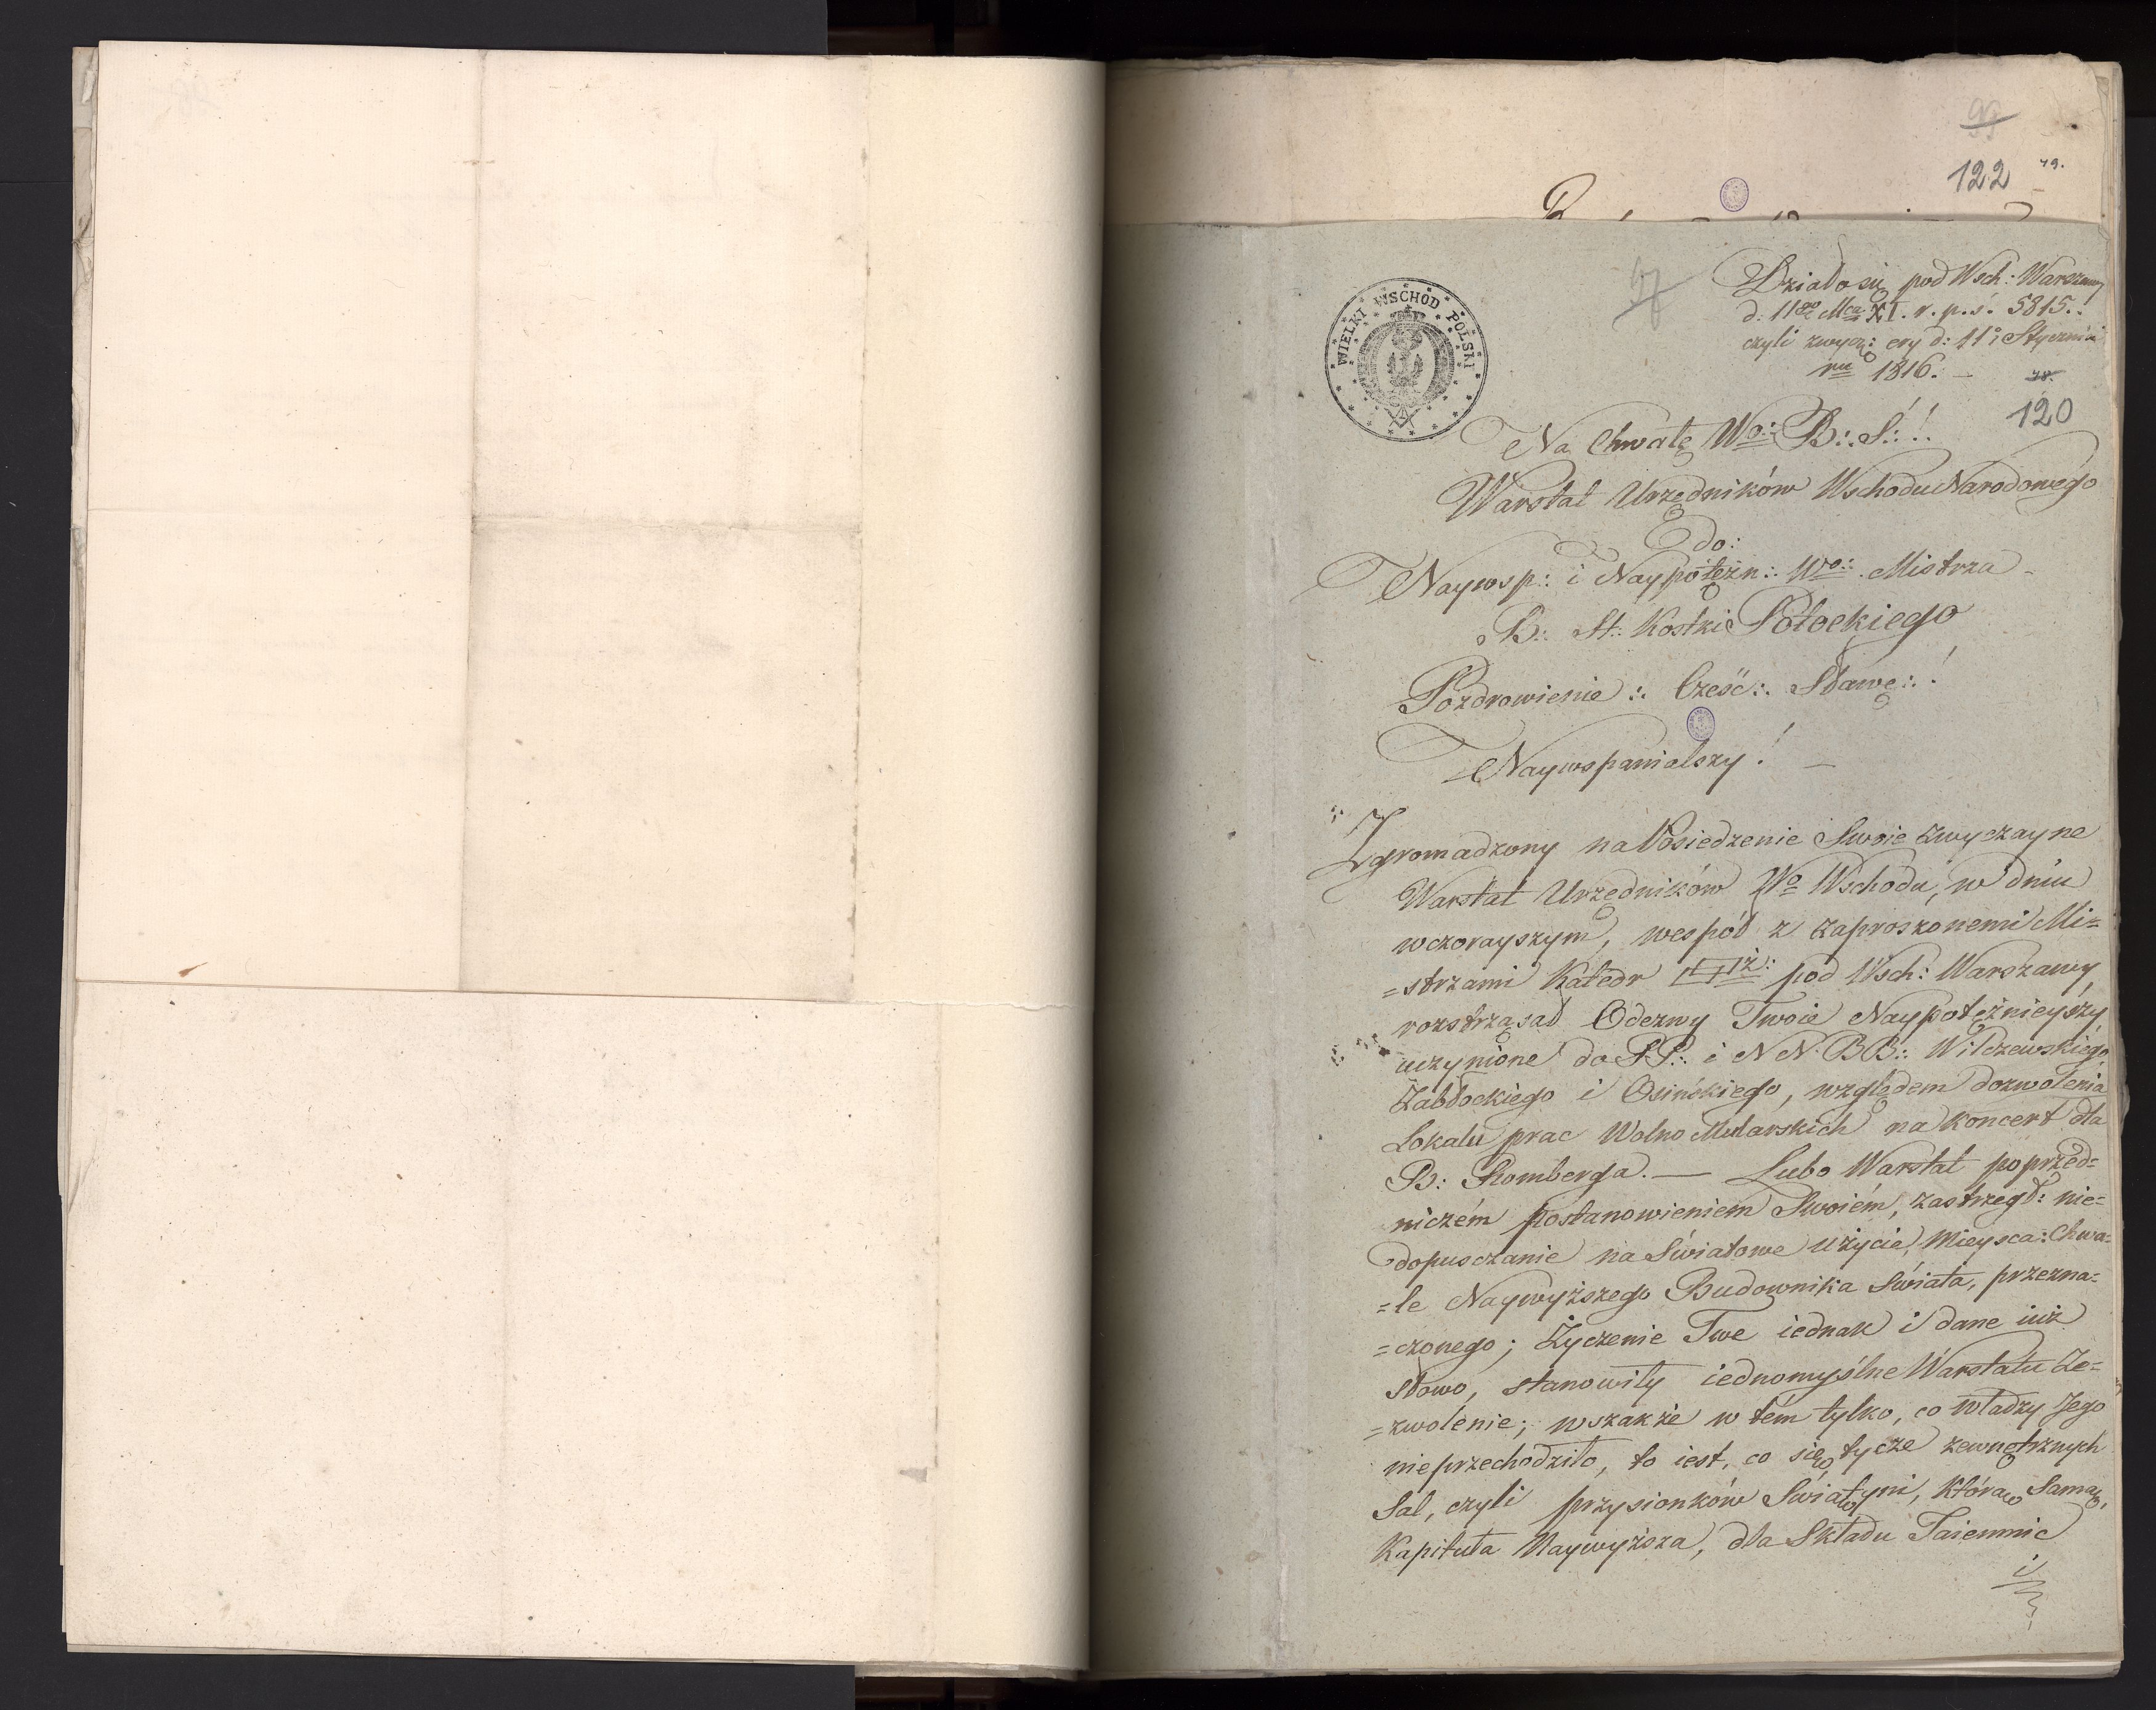 99
122
79.
WIELKI WSCHOD POLSKI
97
Działo się pod Wsch: Warszawy
d: 11go Mca XI. r. p. ś. 5815..
czyli zwycz: ery d: 11: Stycznia
ru 1816. —
78.
120
Na Chwałę Wo:. B:. S:. !
Warstat Urzędników Wschodu Narodowégo
do:
Naywsp: i Naypotężn:. Wo:. Mistrza
B:. St:. Kostki Potockiego
Pozdrowienie :. Cześć:. Sławę:. !
Naywspanialszy ! —
Zgromadzony na Posiedzenie Swoie zwyczayne
Warstat Urzędników Wo Wschodu, w dniu
wczorayszym, wespół z zaproszonemi Mi=
=strzami Katedr pod Wsch: Warszawy,
rozstrząsał Odezwy Twoie Naypotężnieyszy
uczynione do P.P:. i N N. BB:. Wilczewskiego,
Zabłockiego i Osińskiego, względem dozwolenia
Lokalu prac Wolno Mularskich na koncert dla
B: Romberga. — Lubo Warstat poprzed=
niczém postanowieniem Swoiém, zastrzegł: nie=
dopuszczanie na Światowe użycie, Mieysca: Chwa=
=le Naywyższego Budownika Świata, przezna=
=czonego; Życzenie Twe iednak i dane iuż
słowo, stanowiły iednomyślne Warstatu Ze=
=zwolenie; wszakże w tém tylko, co władzy Jego
nieprzechodziło, to iest, co się tycze zewnętrznych
Sal, czyli przysionków Świątyni, którą Samą,
Kapituła Naywyższa, dla Składu Taiemnic
i